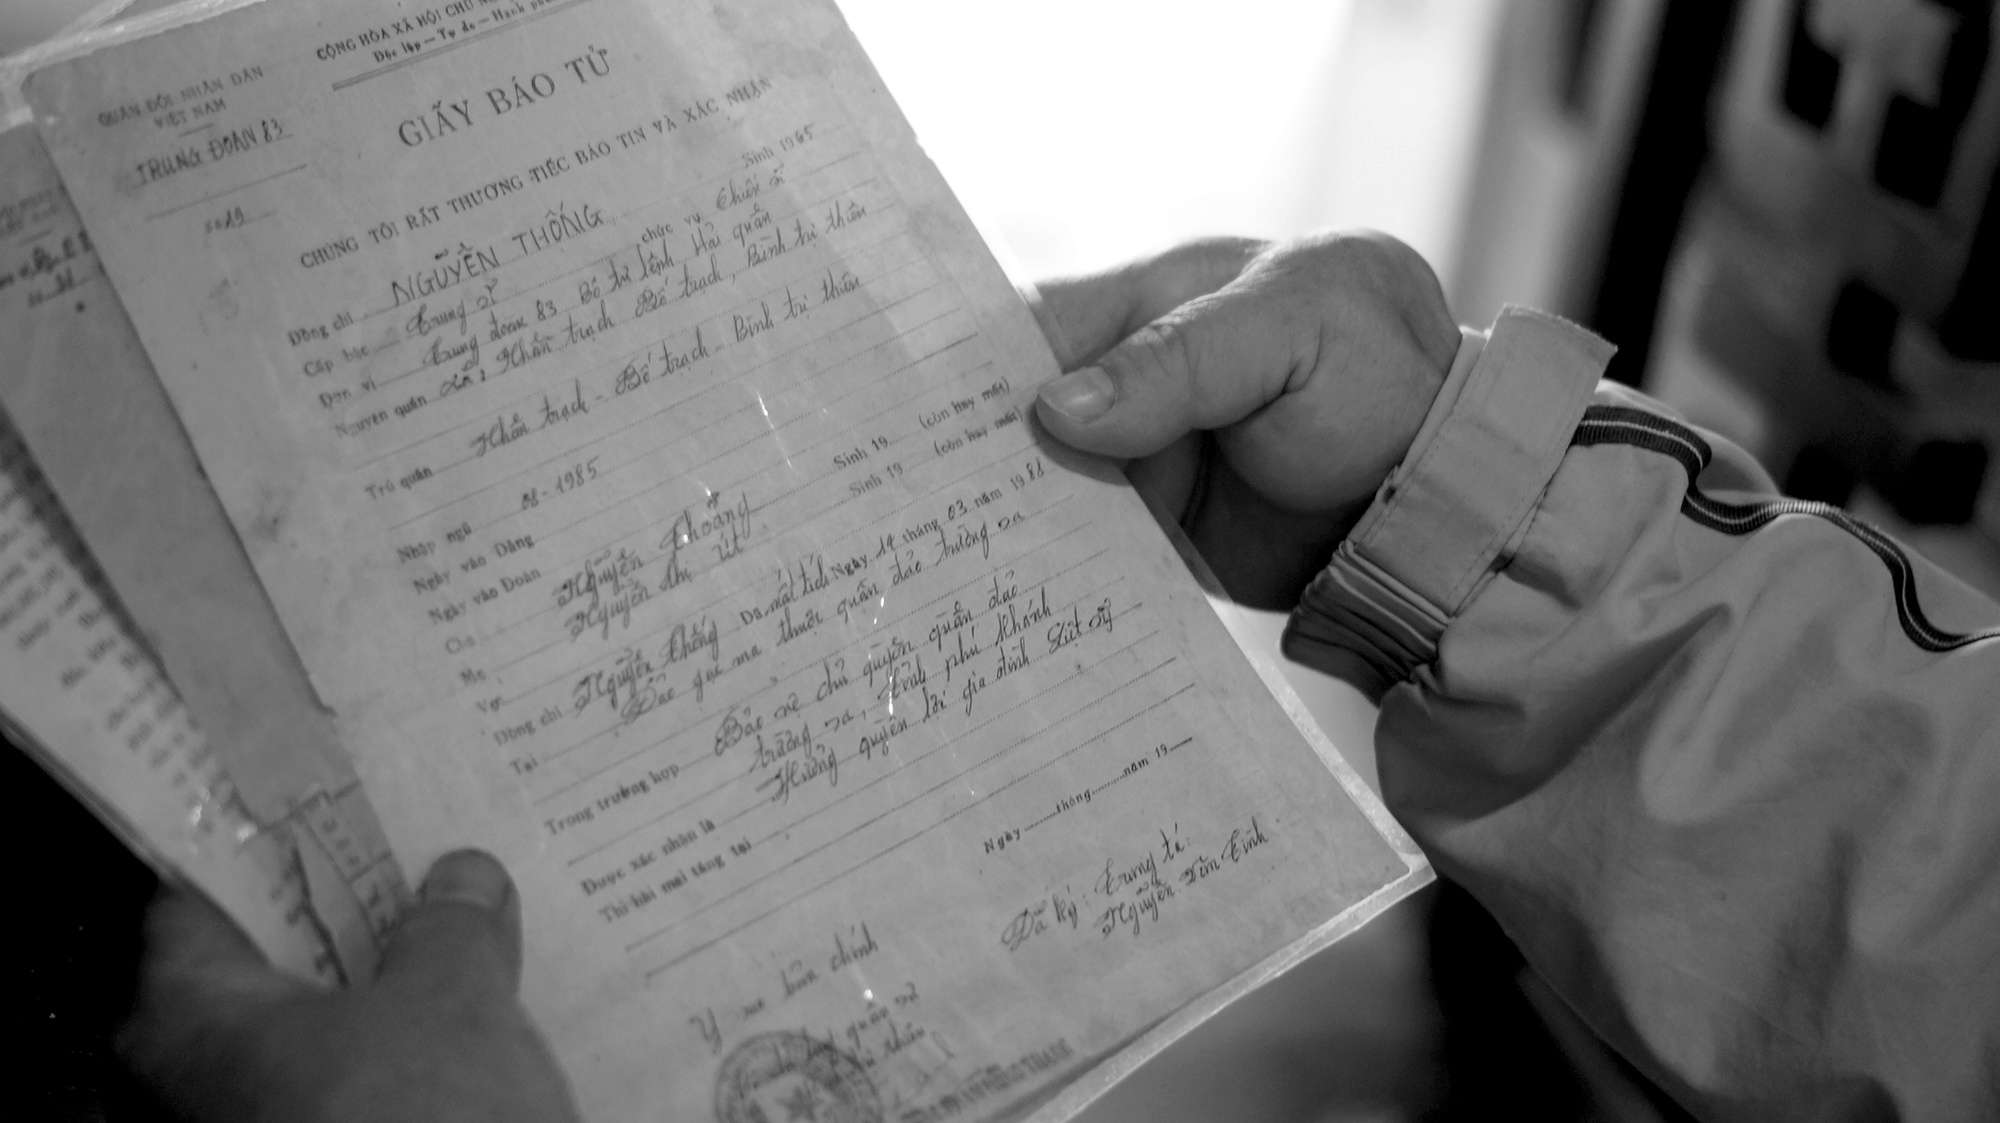 CỘNG HÒA XÃ HỘI CHỦ
Độc lập — Tự do — Hạnh
QUÂN ĐỘI NHÂN DÂN
VIỆT NAM
TRUNG ĐOÀN 83
GIẤY BÁO TỬ
CHÚNG TÔI RẤT THƯƠNG TIẾC BÁO TIN VÀ XÁC NHẬN
Đồng chí NGUYỄN THỐNG Sinh 1965
Cấp bậc Trung sĩ chức vụ Chiến sĩ
Đơn vị Trung đoàn 83 Bộ tư lệnh Hải quân
Nguyên quán Nhân trạch Bố trạch, Bình trị thiên
Trú quán Nhân trạch - Bố trạch - Bình trị thiên
Nhập ngũ 08-1985
Ngày vào Đảng
Ngày vào Đoàn
Cha Nguyễn Thoảng Sinh 19 (còn hay mất)
Mẹ Nguyễn thị út Sinh 19 (còn hay mất)
Vợ
Đồng chí Nguyễn Thống Đã mất tích Ngày 14 tháng 03 năm 1988
Tại Đảo gạc ma thuộc quần đảo trường sa
Trong trường hợp Bảo vệ chủ quyền quần đảo
trường sa, tỉnh phú khánh
Được xác nhận là Hưởng quyền lợi gia đình liệt sỹ
Thi hài mai táng tại
Ngày tháng năm 19
Đã ký: Trung tá:
Nguyễn Văn Tính
Y sao bản chính